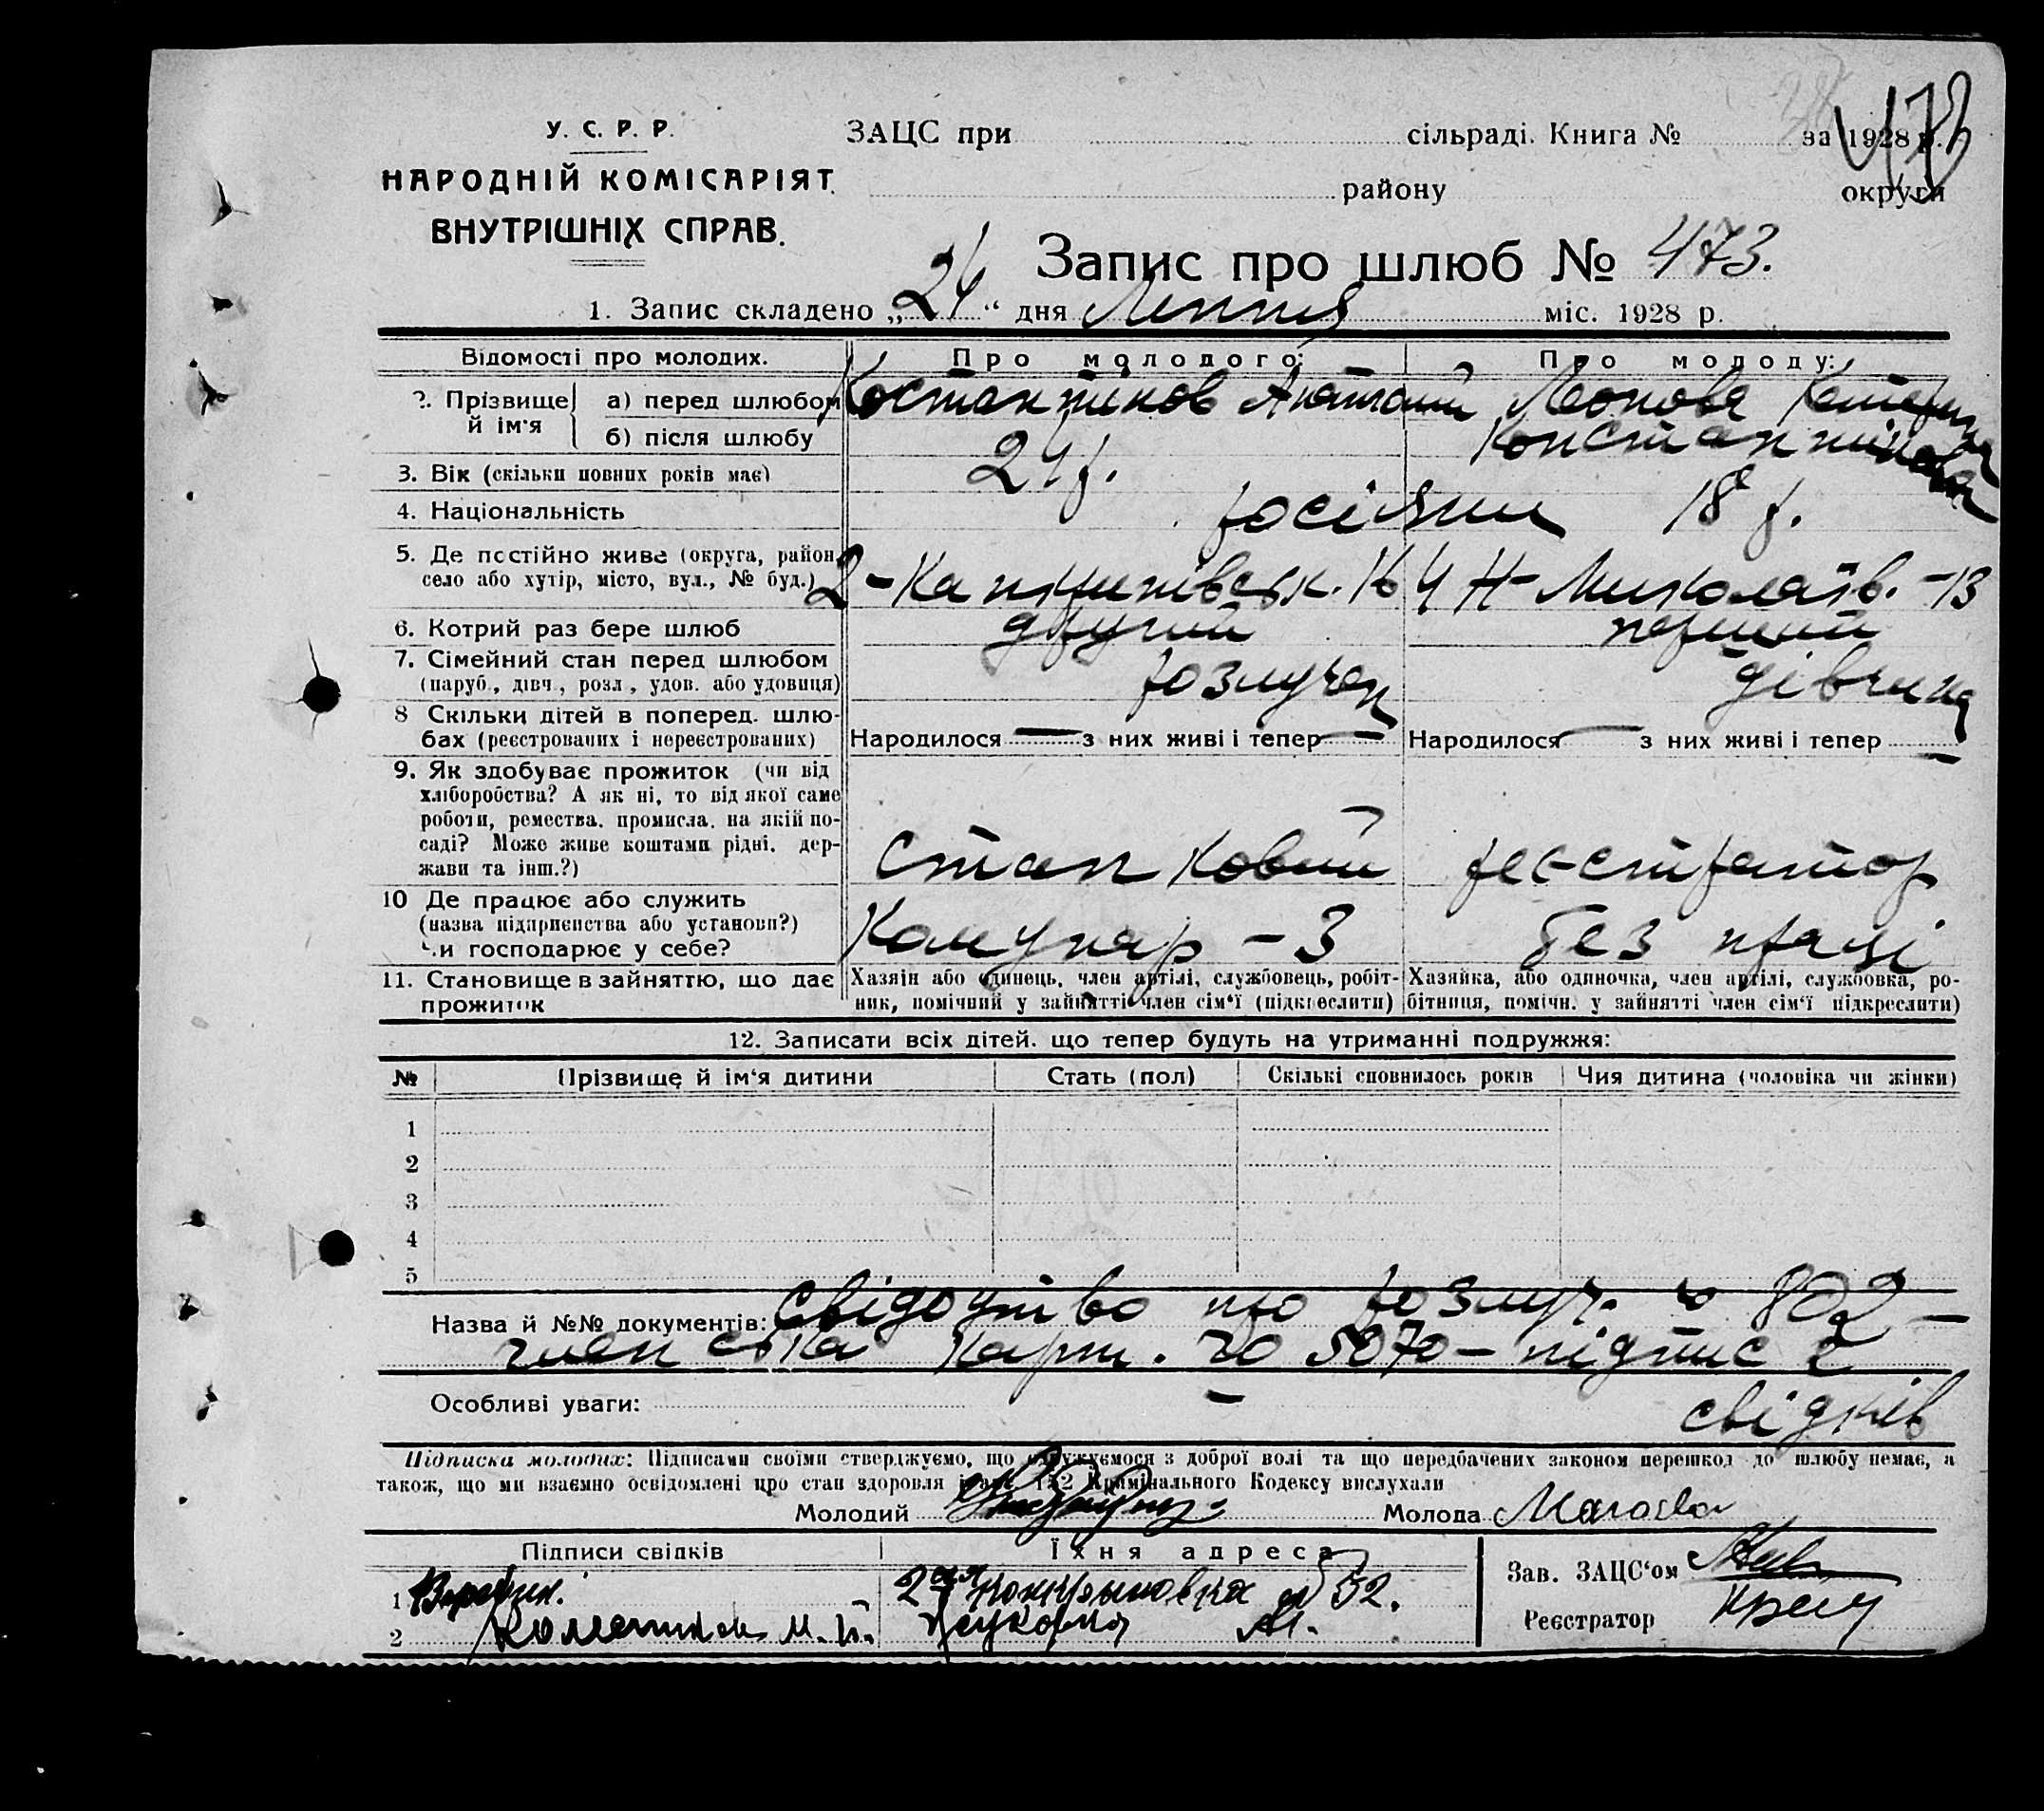 473
У. С. Р. Р.
НАРОДНІЙ КОМІСАРІЯТ
ВНУТРІШНІХ СПРАВ.
ЗАЦС при сільраді. Книга № за 1928 р.
району округи
Запис про шлюб № 473.
1. Запис складено „24“ дня Липня міс. 1928 р.
Відомості про молодих. Про молодого: Про молоду:
2. Прізвище й ім'я
а) перед шлюбом Костантинов
б) після шлюбу Константинова
3. Вік (скільки повних років має) 24 р. 18 р.
4. Національність росіяни
5. Де постійно живе (округа, район
село або хутір, місто, вул., № буд.) 4 Н-Миколаїв. -13
6. Котрий раз бере шлюб другий перший
7. Сімейний стан перед шлюбом
(паруб., дівч., розл., удов. або удовиця) розлучен дівчина
8 Скільки дітей в поперед. шлю-
бах (реєстрованих і нереєстрованих)
Народилося — з них живі і тепер — Народилося — з них живі і тепер —
9. Як здобуває прожиток (чи від
хліборобства? А як ні, то від якої саме
роботи, ремества, промисла, на якій по-
саді? Може живе коштами рідні, дер-
жави та інш.?)
становий реєстратор
10 Де працює або служить
(назва підприєнства або установи?)
Чи господарює у себе?
Комунар - 3 без праці
11. Становище в зайняттю, що дає
прожиток
Хазяїн або одинець, член артілі, службовець, робіт-
ник, помічний у зайнятті член сім'ї (підкреслити)
Хазяйка, або одиночка, член артілі, службовка, ро-
бітниця, помічн. у зайнятті член сім'ї підкреслити)
12. Записати всіх дітей, що тепер будуть на утриманні подружжя:
№ Прізвище й ім'я дитини Стать (пол) Скількі сповнилось років Чия дитина (чоловіка чи жінки)
1
2
3
4
5
Назва й №№ документів: свідоцтво про розлуч. № 802 —
членська карт. № 5070 — підпис 2
свідків
Особливі уваги: —
Підписка молодих: Підписами своїми стверджуємо, що одружуємося з доброї волі та що передбачених законом перешкод до шлюбу немає, а
також, що ми взаємно освідомлені про стан здоровля і арт. 152 Кримінального Кодексу вислухали
Молодий Молода
Підписи свідків Їхня адреса
1 № 52.
2 М.
Зав. ЗАЦС'ом
Реєстратор